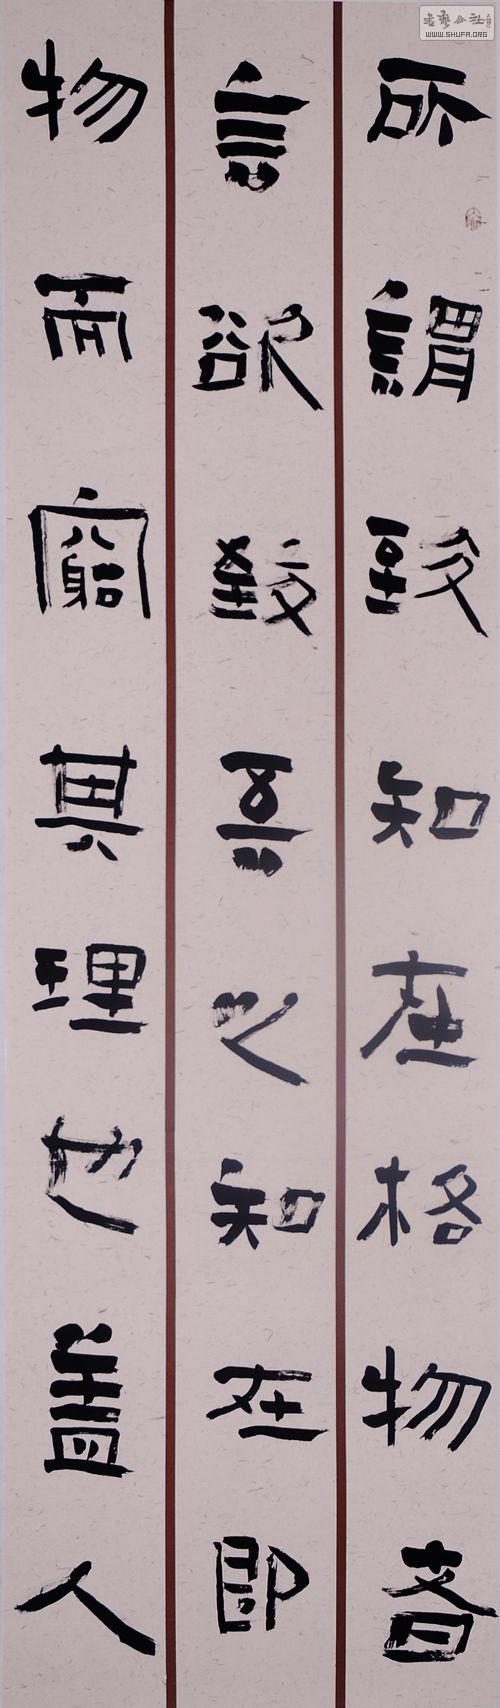 所謂致知在格物者
言欲致吾之知在即
物而窮其理也蓋人
書藝公社
WWW.SHUFA.ORG